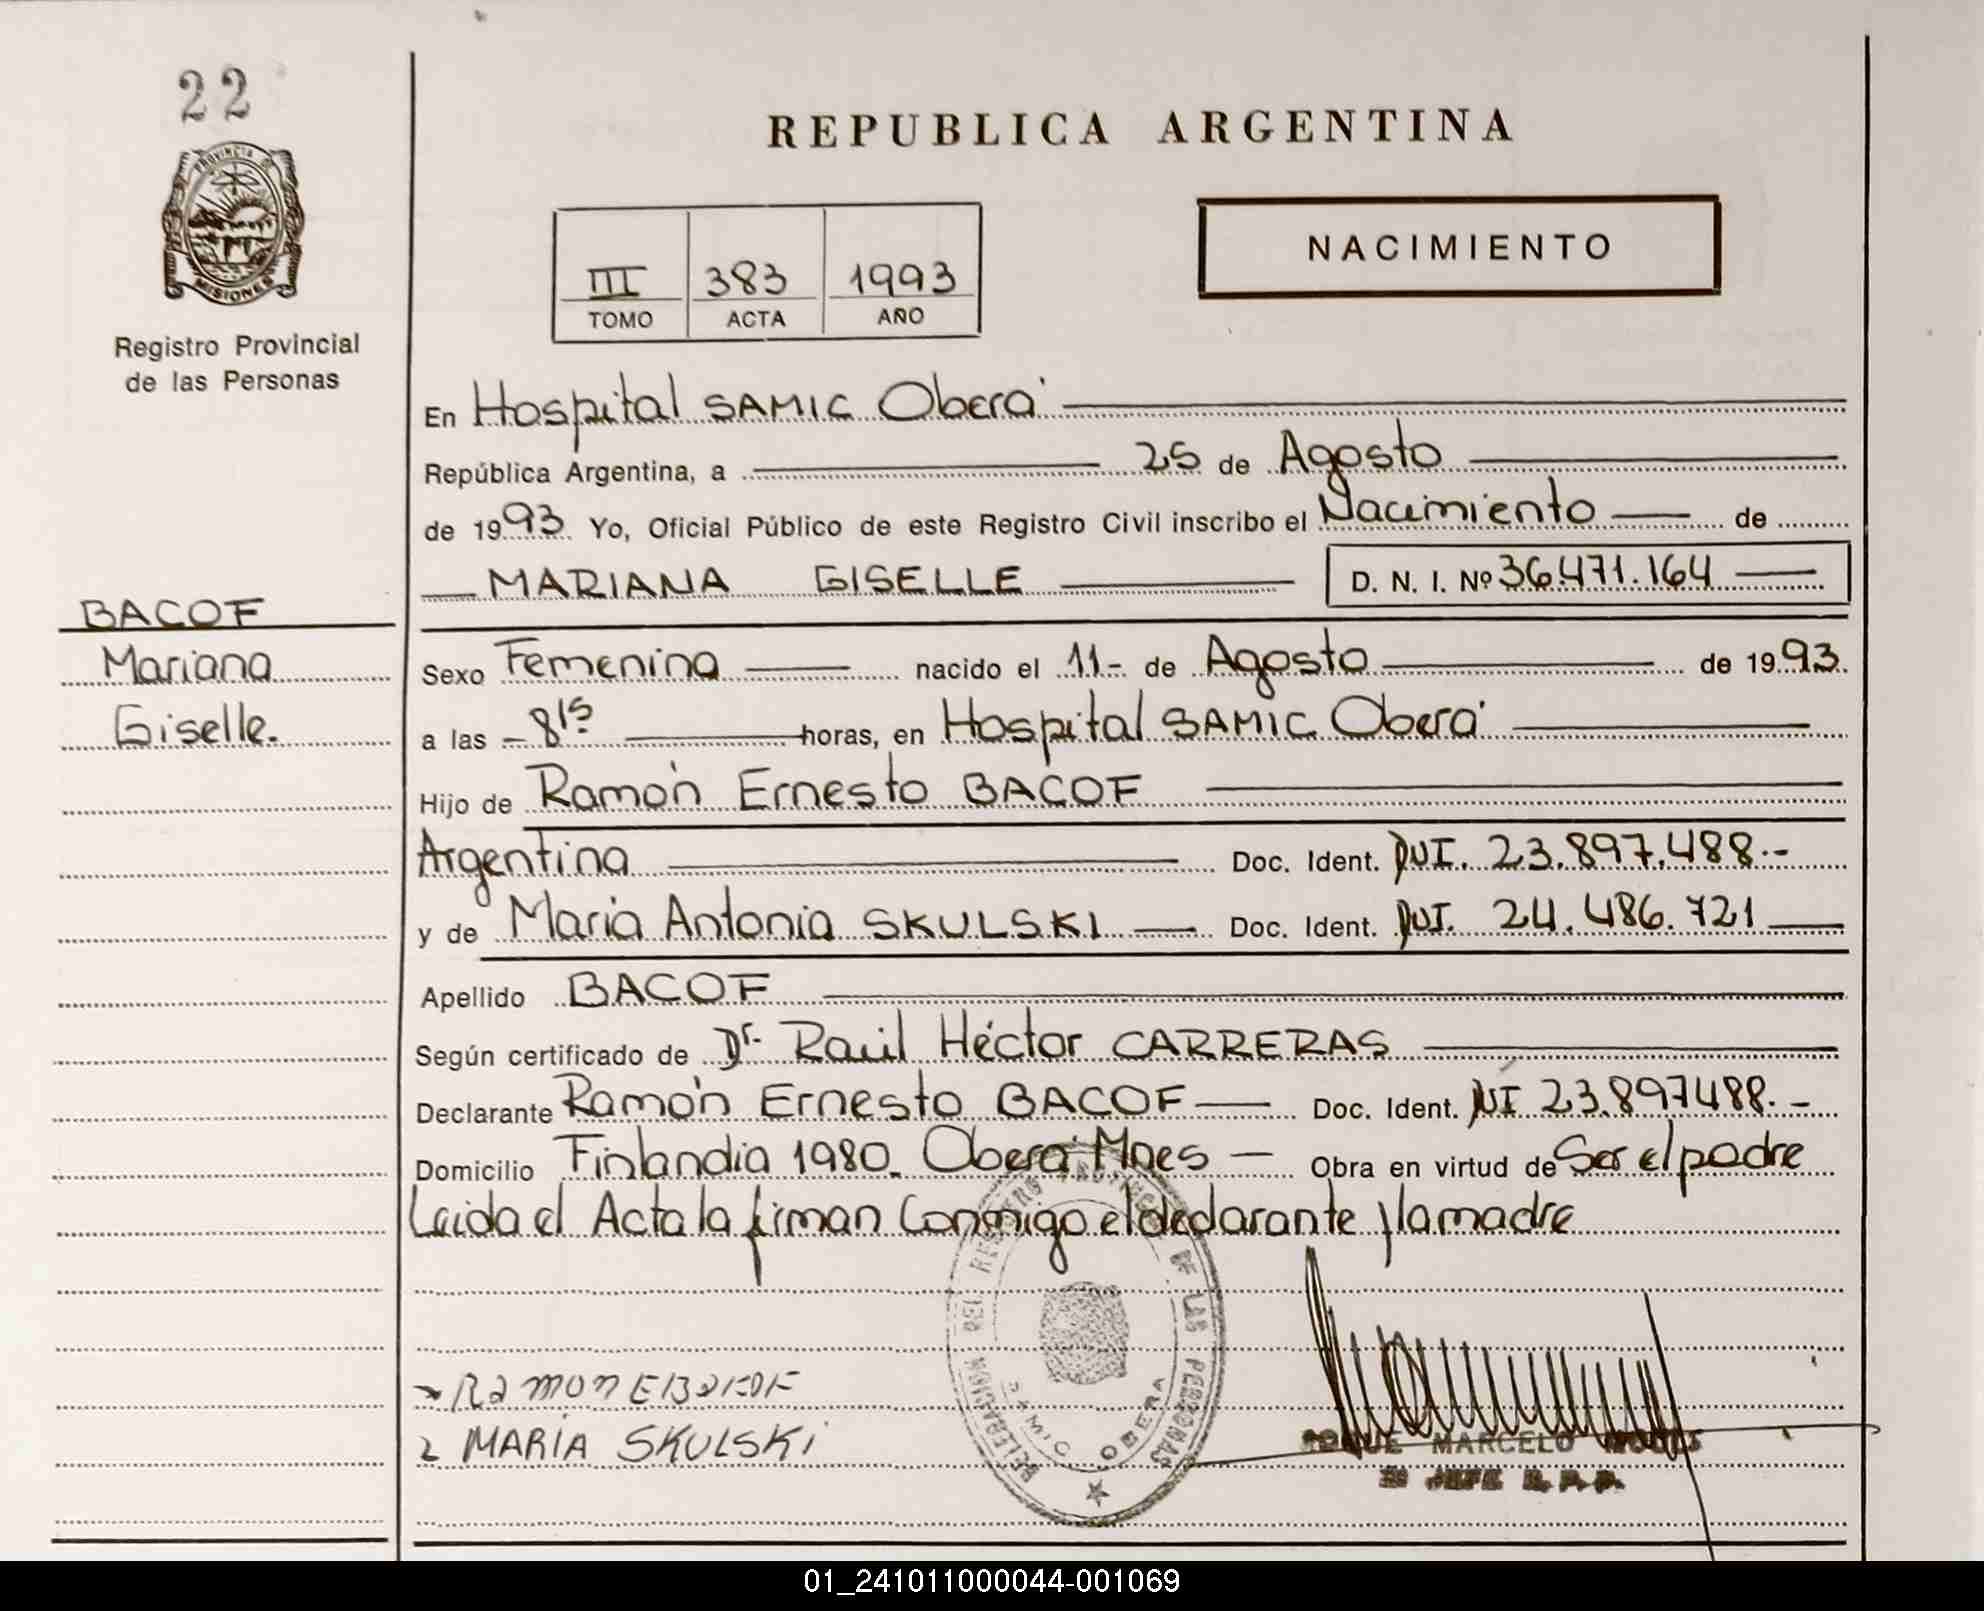 22
PROVINCIA DE
MISIONES
Registro Provincial
de las Personas
REPUBLICA ARGENTINA
III 383 1993
TOMO ACTA AÑO
NACIMIENTO
En Hospital SAMIC Oberá
República Argentina, a 25 de Agosto
de 1993 Yo, Oficial Público de este Registro Civil inscribo el Nacimiento de
MARIANA GISELLE D. N. I. Nº 36.471.164
BACOF
Mariana
Giselle.
Sexo Femenina nacido el 11- de Agosto de 1993.
a las - 8¹⁵ horas, en Hospital SAMIC Oberá
Hijo de Ramón Ernesto BACOF
Argentina Doc. Ident. DNI. 23.897.488.-
y de Maria Antonia SKULSKI Doc. Ident. DNI. 24.486.721
Apellido BACOF
Según certificado de Dr. Raúl Héctor CARRERAS
Declarante Ramón Ernesto BACOF Doc. Ident. DNI 23.897488.-
Domicilio Finlandia 1980. Oberá Mnes - Obra en virtud de Ser el padre
Leida el Acta la firman Conmigo el declarante y la madre
RAMON E BACOF
MARÍA SKULSKI
DELEGACION DEL REGISTRO PROVINCIAL DE LAS PERSONAS
OBERA
MARCELO
JEFE R.P.P.
01_241011000044-001069